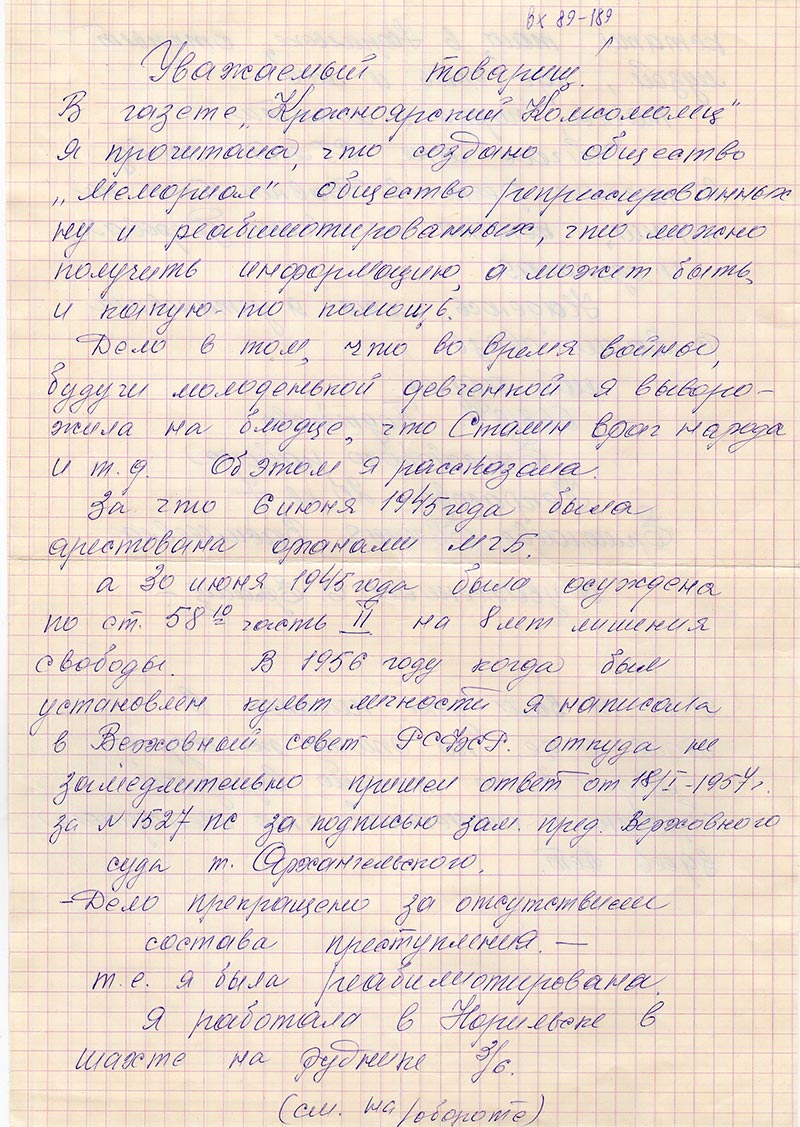 вх 89-189
Уважаемый товарищ.
В газете „Красноярский Комсомолец"
я прочитала, что создано общество
„Мемориал" общество репрессированных
ну и реабилитированных, что можно
получить информацию, а может быть,
и какую-то помощь.
Дело в том, что во время войны,
будучи молоденькой девченкой я выворо-
жила на блюдце, что Сталин враг народа
и т.д. Об этом я рассказала.
За что 6 июня 1945 года была
арестована органами МГБ.
а 30 июня 1945 года была осуждена
по ст. 58 10 часть II на 8 лет лишения
свободы. В 1956 году когда был
установлен культ личности я написала
в Верховный совет РСФСР. откуда не
замедлительно пришел ответ от 18/I-1957 г.
за N 1527 пс за подписью зам. пред. Верховного
суда т. Архангельского.
-Дело прекращено за отсутствием
состава преступления. —
т.е. я была реабилитирована.
Я работала в Норильске в
шахте на руднике 3/6.
(см. на обороте)